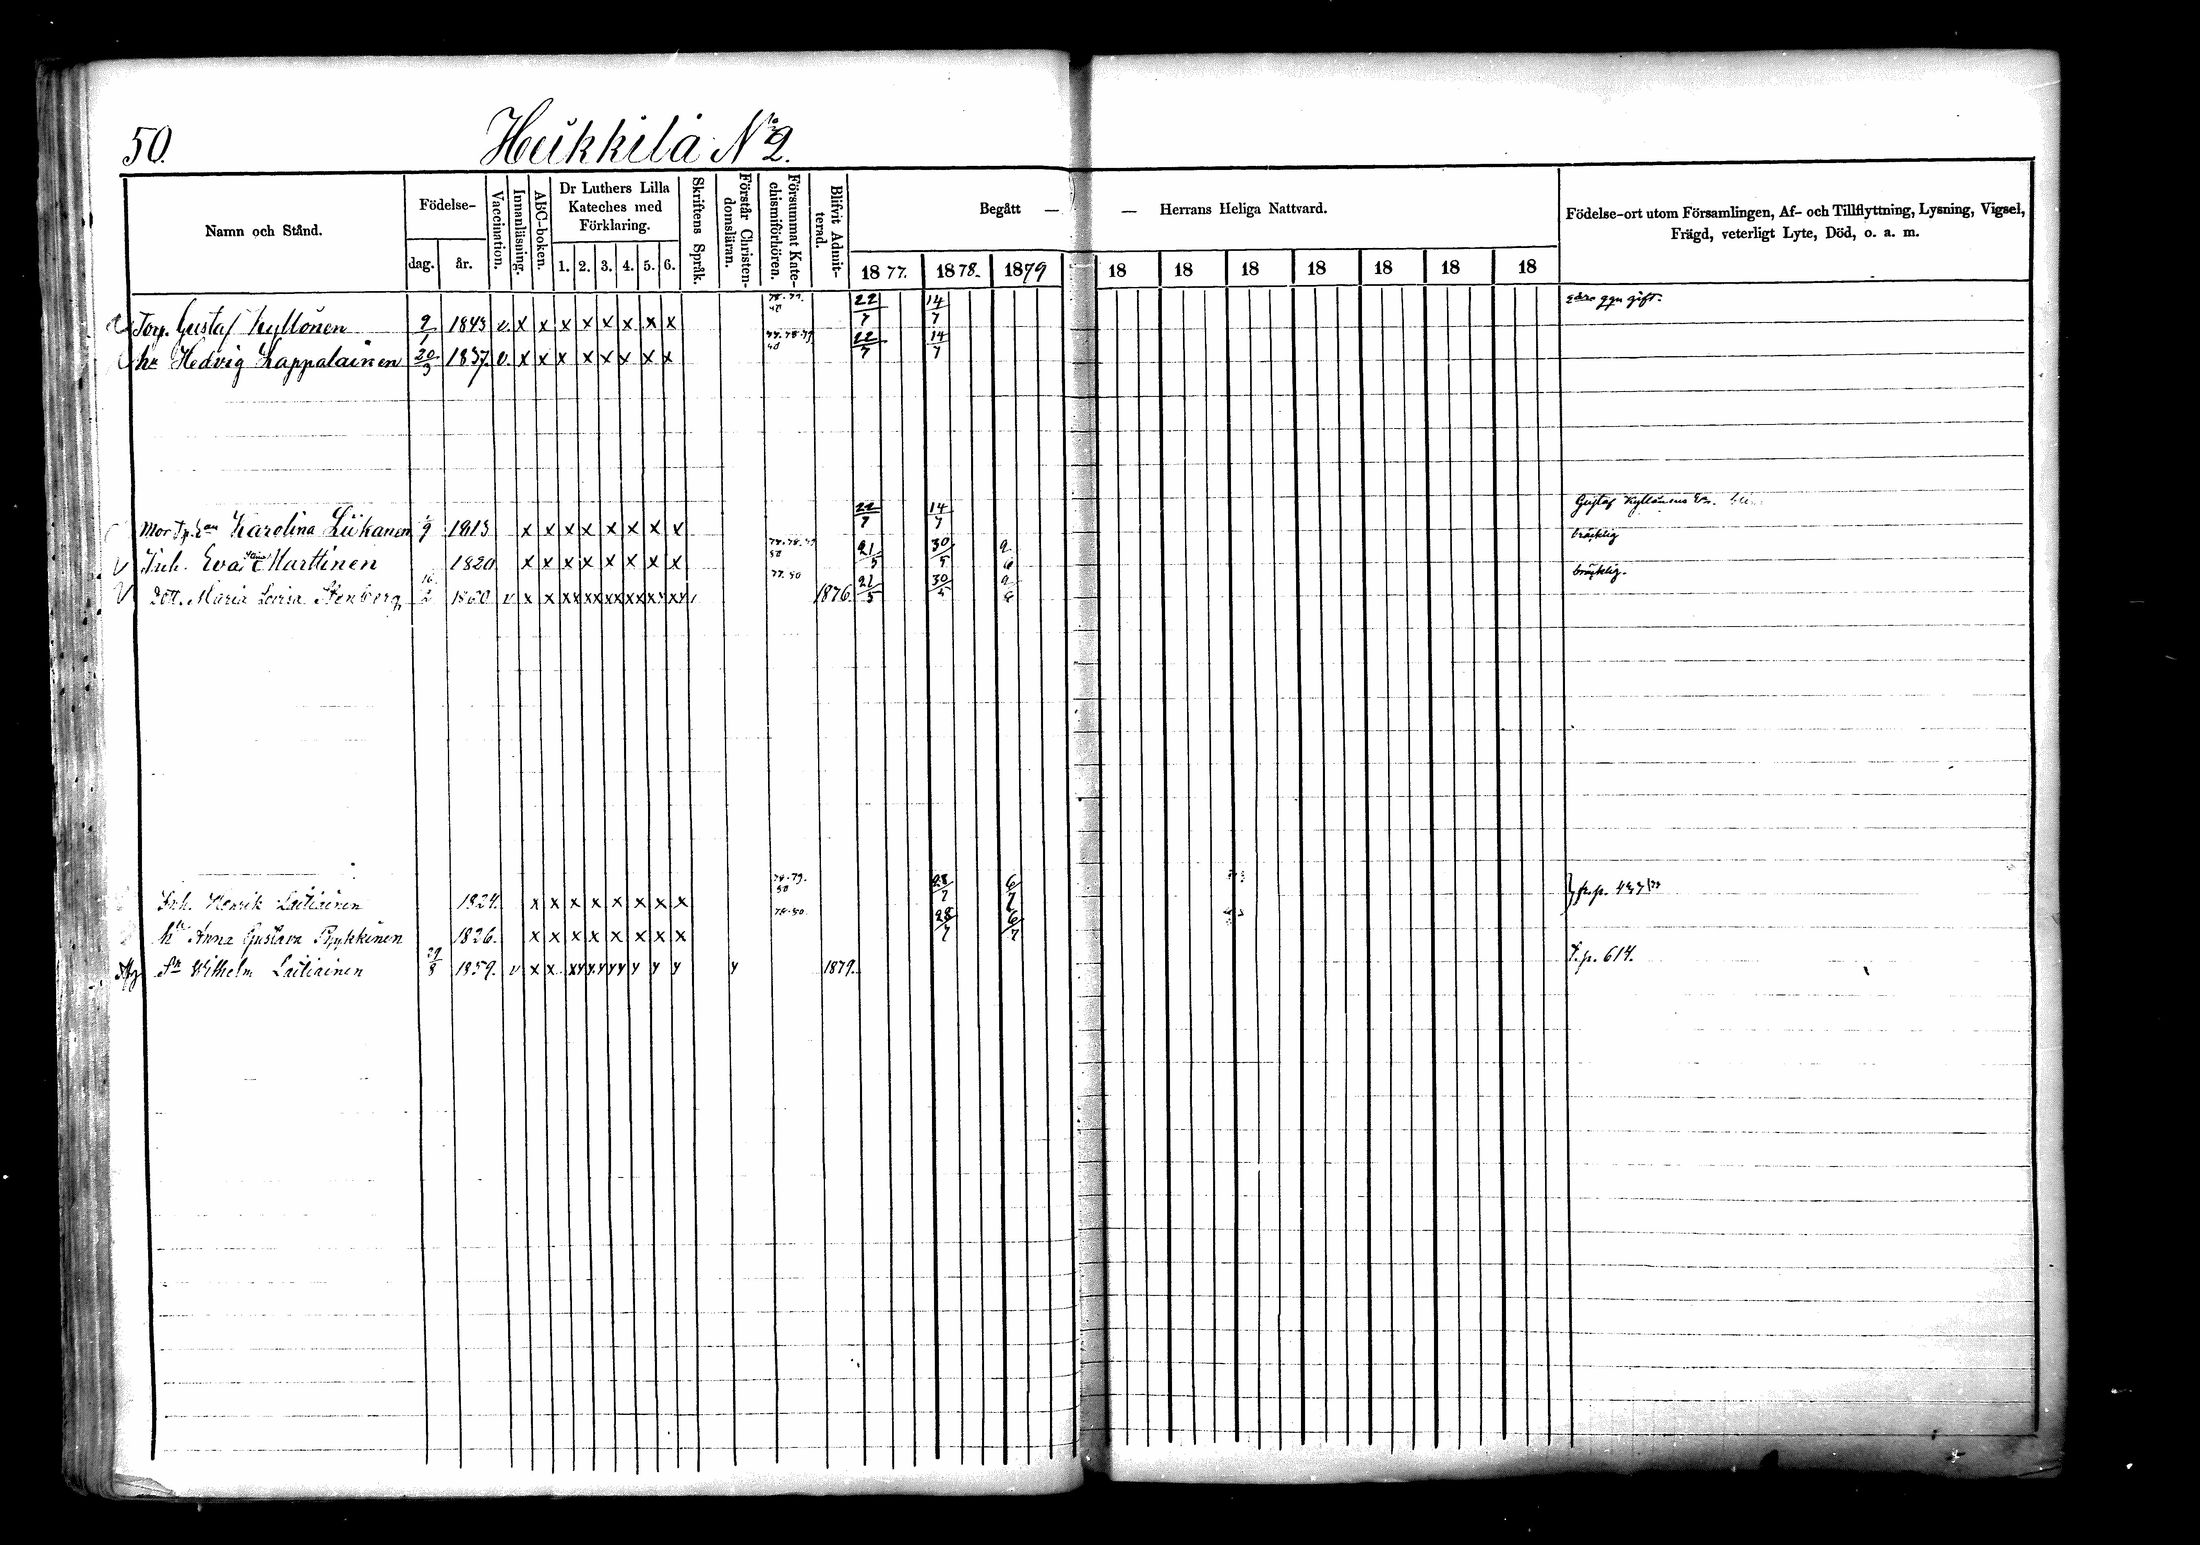 50.
Heikkilä No 2.
Namn och Stånd.
Födelse-
dag.
år.
Vaccination.
Innanläsning.
ABC-boken.
Dr Luthers Lilla Kateches med Förklaring.
1. 2. 3. 4. 5. 6.
Skriftens Språk.
Förstår Christen-domsläran.
Försummat Kate-chismiförhören.
Blifvit Admit-terad.
Begått — — Herrans Heliga Nattvard.
1877. 1878. 1879 18 18 18 18 18 18 18
Födelse-ort utom Församlingen, Af- och Tillflyttning, Lysning, Vigsel,
Frägd, veterligt Lyte, Död, o. a. m.
Torp. Gustaf Kyllönen 9/1 1843 v. x x x x x x x x 22/7 14/7 ggn gift.
hu Hedvig Lappalainen 20/3 1837. v. x x x x x x x x 77.78.79 22/7 14/7
Mor Karolina Liikanen 1813 x x x x x x x x 22/7 14/7 Gustaf Kyllönens
Inh. Eva Stina Marttinen 1820 x x x x x x x x 21/5 30/5 9/6 bräcklig
Dott. Maria Lovisa Stenberg 16/2 1860 v x x xx xx xx xx xy xy 77.80 1876. 21/5 30/5 9/6 bräcklig.
Inh. Henrik Laitiainen 1824. x x x x x x x x 78.79. 80 28/7 6/7
hu Anna Gustava Pyykkönen 1826. x x x x x x x x 78.80 28/7 6/7
Sn Wilhelm Laitiainen 29/8 1859. v x x xy yy yy y y y y 1879. f. p. 614.